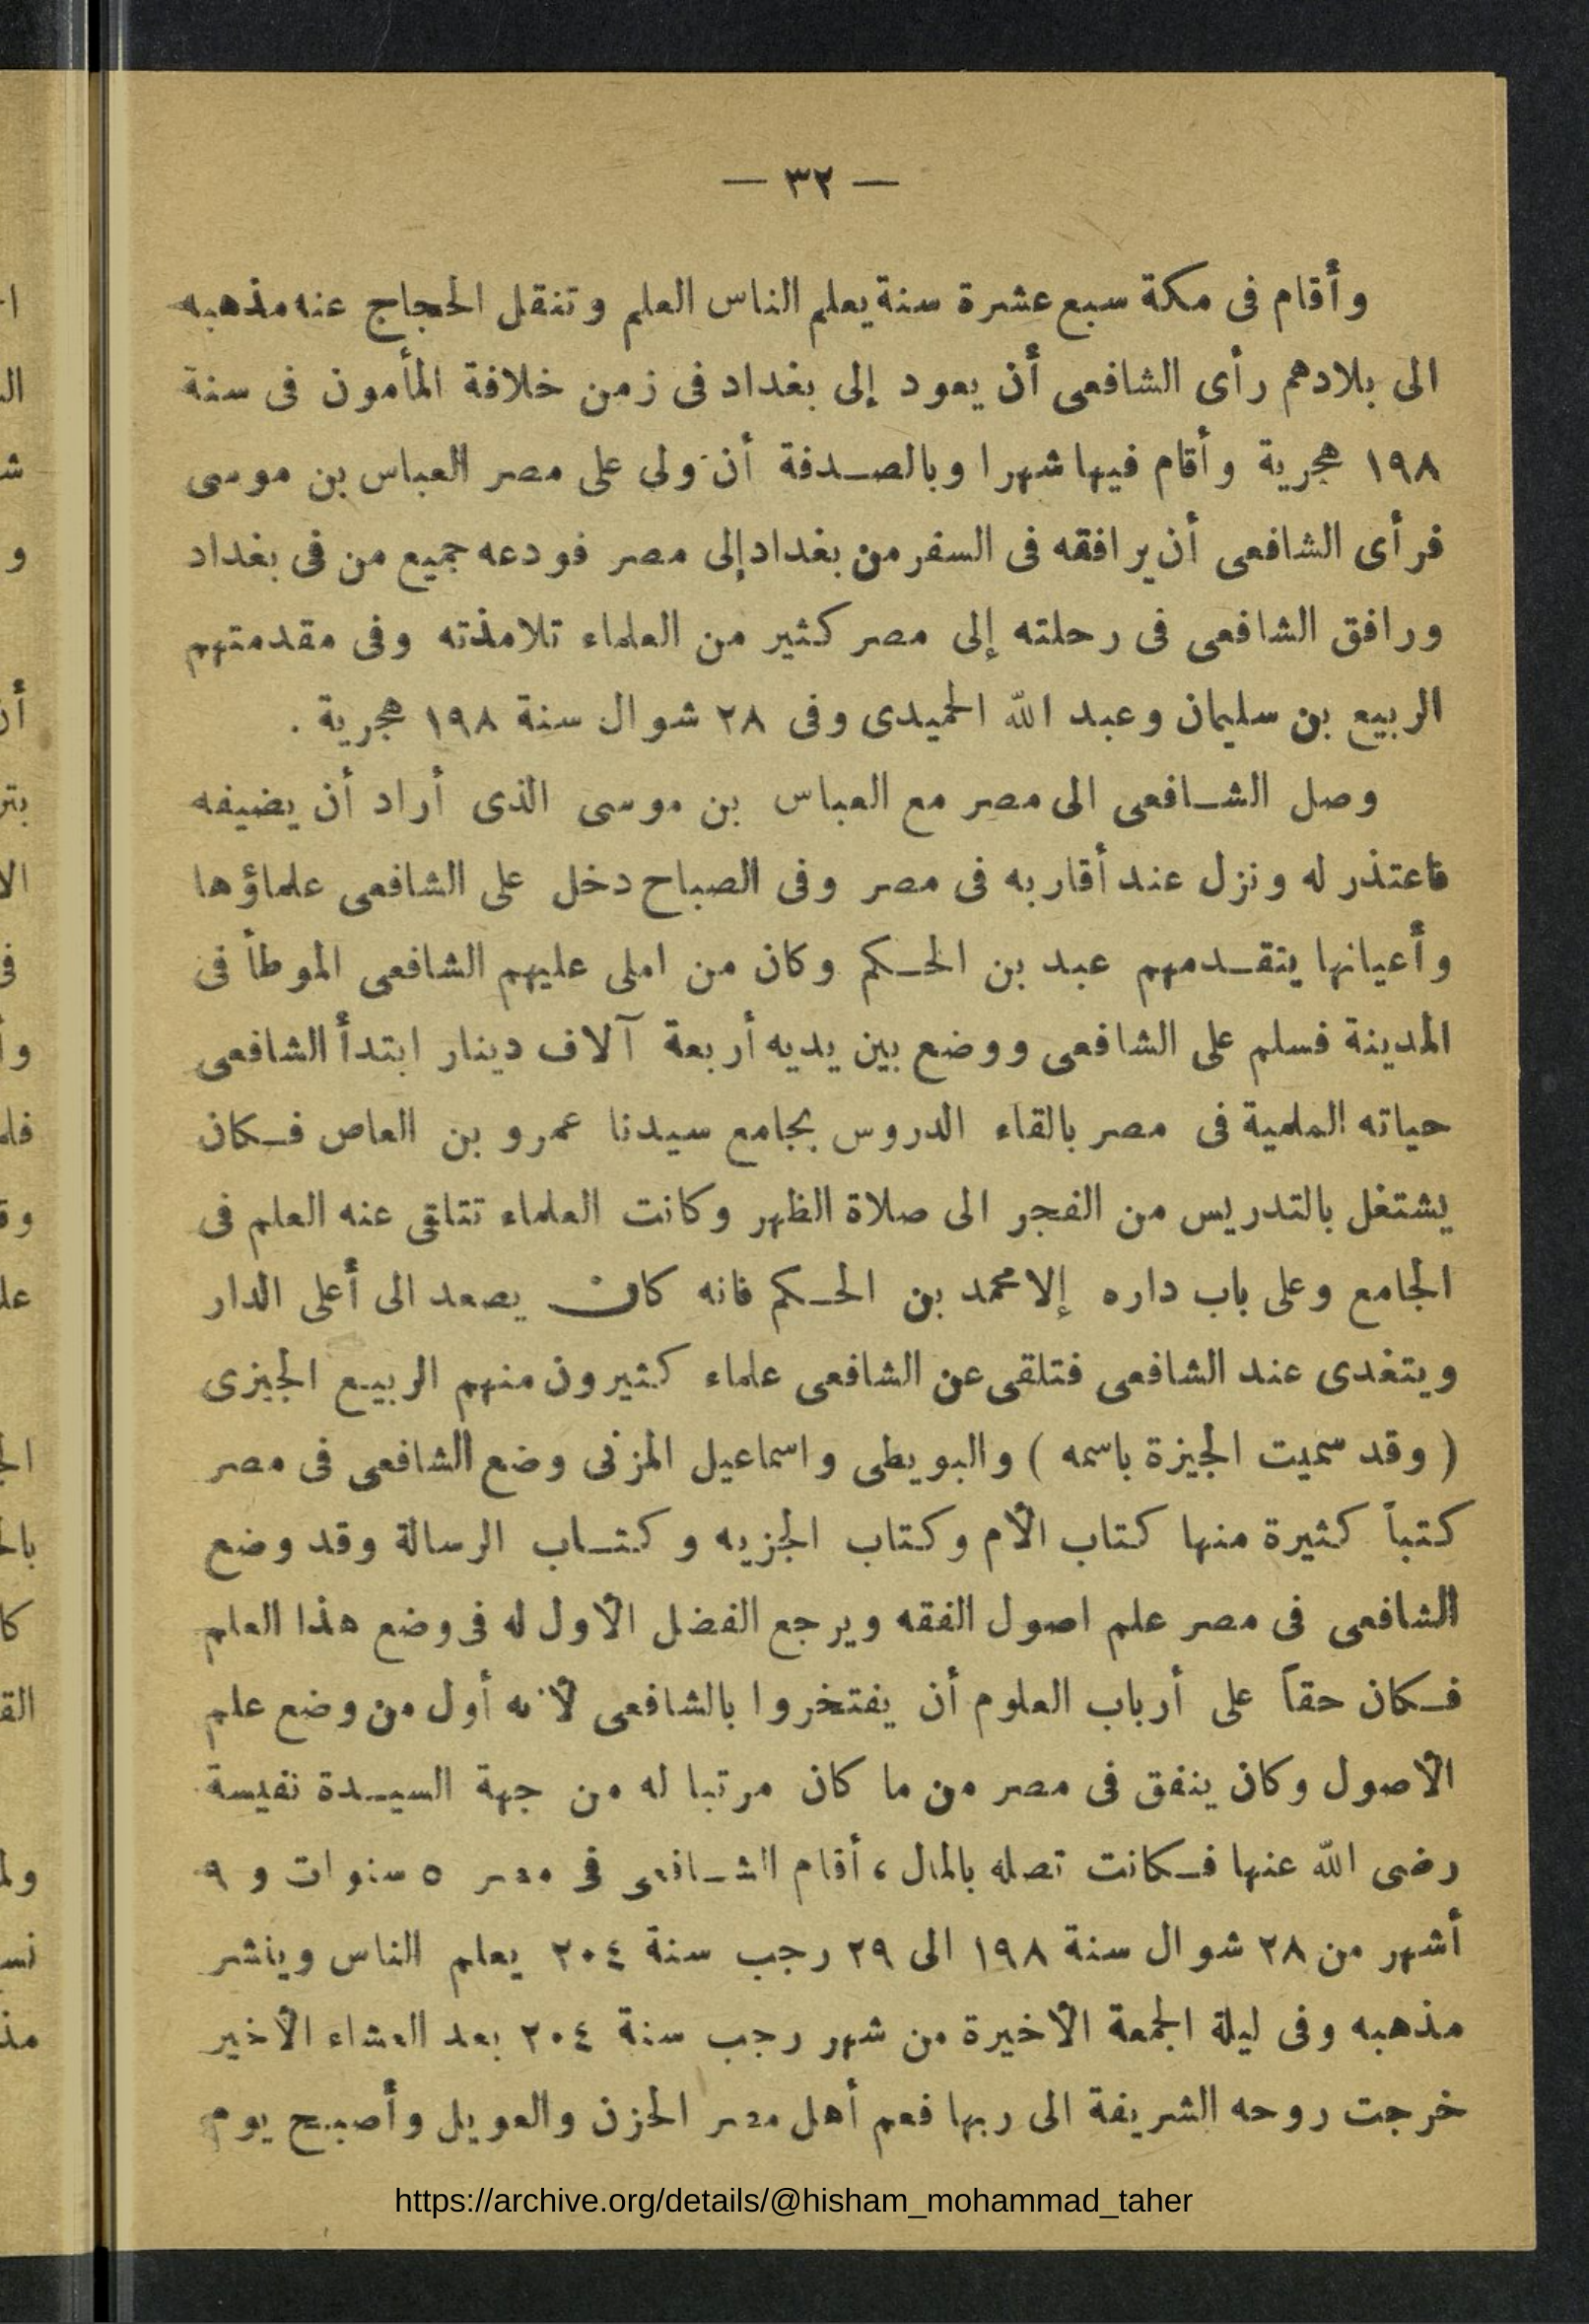 — ٣٢ —
وأقام فى مكة سبع عشرة سنة يعلم الناس العلم وتنقل الحجاج عنه مذهبه
الى بلادهم رأى الشافعى أن يعود إلى بغداد فى زمن خلافة المأمون فى سنة
١٩٨ هجرية وأقام فيها شهرا وبالصدفة أن ولى على مصر العباس بن موسى
فرأى الشافعى أن يرافقه فى السفر من بغداد إلى مصر فودعه جميع من فى بغداد
ورافق الشافعى فى رحلته إلى مصر كثير من العلماء تلامذته وفى مقدمتهم
الربيع بن سليمان وعبد الله الحميدى وفى ٢٨ شوال سنة ١٩٨ هجرية .
وصل الشافعى الى مصر مع العباس بن موسى الذى أراد أن يضيفه
فاعتذر له ونزل عند أقاربه فى مصر وفى الصباح دخل على الشافعى علماؤها
وأعيانها يتقدمهم عبد بن الحكم وكان من املى عليهم الشافعى الموطأ فى
المدينة فسلم على الشافعى ووضع بين يديه أربعة آلاف دينار ابتدأ الشافعى
حياته العلمية فى مصر بالقاء الدروس بجامع سيدنا عمرو بن العاص فكان
يشتغل بالتدريس من الفجر الى صلاة الظهر وكانت العلماء تتلقى عنه العلم فى
الجامع وعلى باب داره إلا محمد بن الحكم فانه كان يصعد الى أعلى الدار
ويتغدى عند الشافعى فتلقى عن الشافعى علماء كثيرون منهم الربيع الجيزى
( وقد سميت الجيزة باسمه ) والبويطى واسماعيل المزنى وضع الشافعى فى مصر
كتباً كثيرة منها كتاب الأم وكتاب الجزيه وكتاب الرسالة وقد وضع
الشافعى فى مصر علم اصول الفقه ويرجع الفضل الأول له فى وضع هذا العلم
فكان حقاً على أرباب العلوم أن يفتخروا بالشافعى لأنه أول من وضع علم
الأصول وكان ينفق فى مصر من ما كان مرتبا له من جهة السيدة نفيسة
رضى الله عنها فكانت تصله بالمال ، أقام الشافعى فى مصر ٥ سنوات و ٩
أشهر من ٢٨ شوال سنة ١٩٨ الى ٢٩ رجب سنة ٢٠٤ يعلم الناس وينشر
مذهبه وفى ليلة الجمعة الأخيرة من شهر رجب سنة ٢٠٤ بعد العشاء الأخير
خرجت روحه الشريفة الى ربها فعم أهل مصر الحزن والعويل وأصبح يوم
https://archive.org/details/@hisham_mohammad_taher